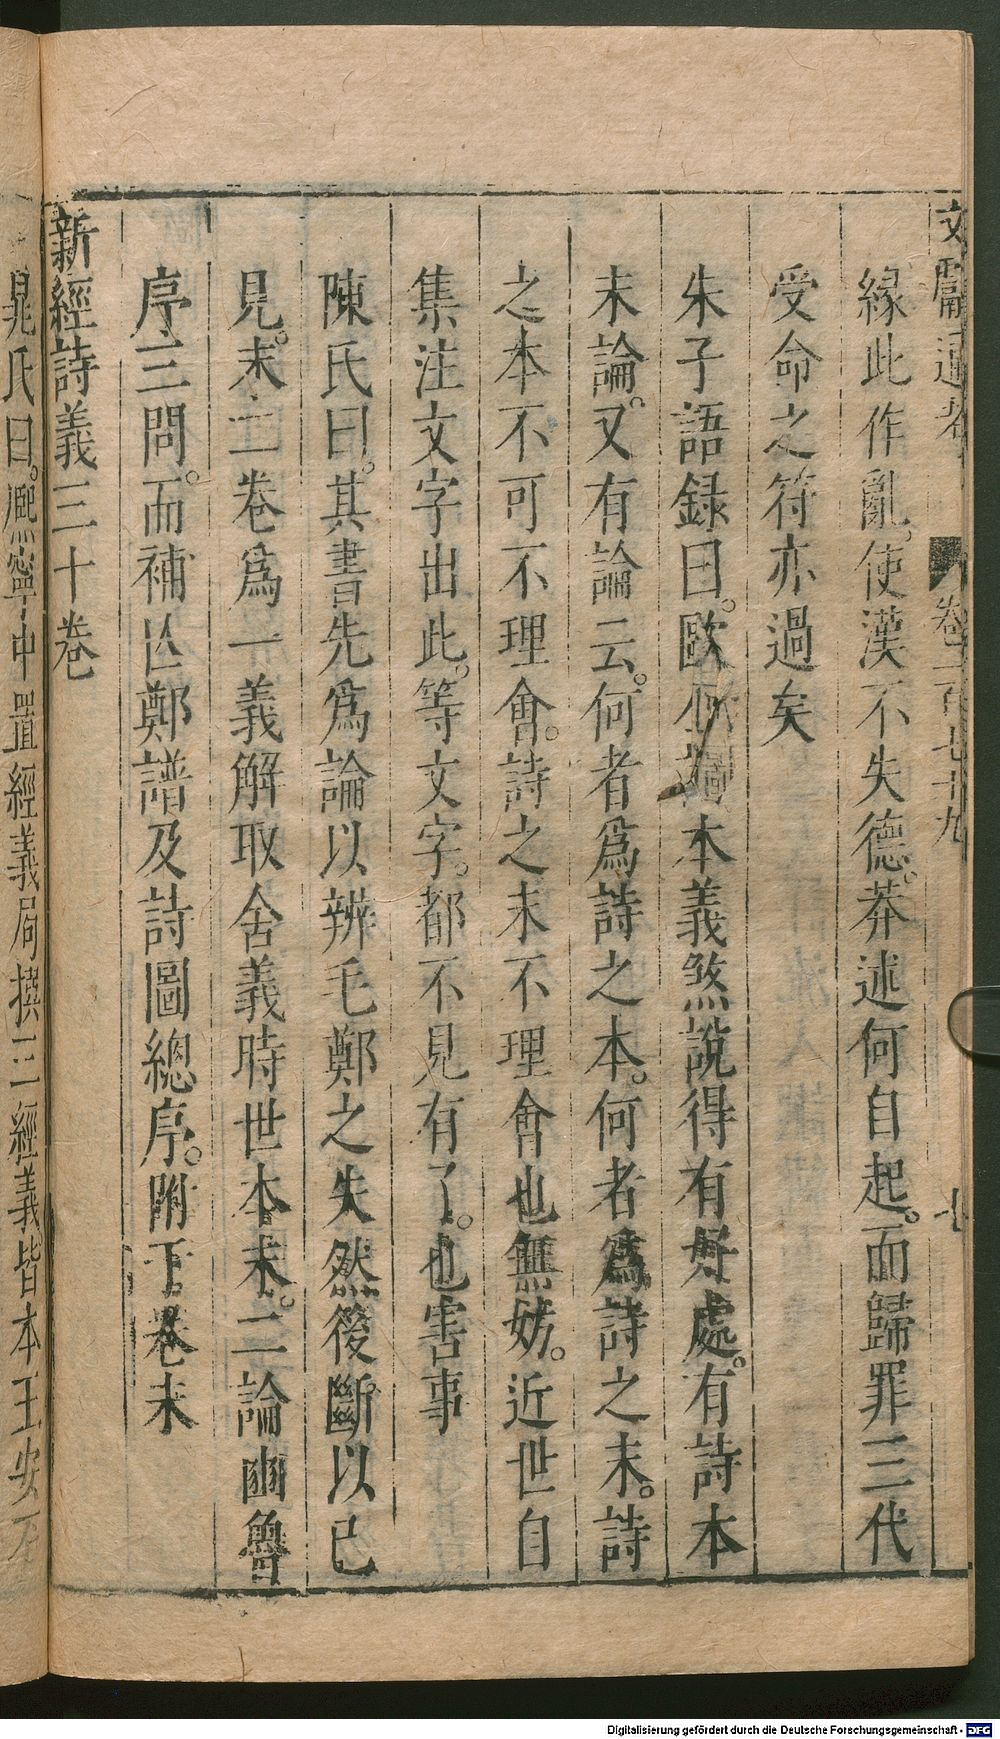 文獻通考 卷一百七十九 七
緣此作亂。使漢不失德。莽述何自起。而歸罪三代
受命之符亦過矣
朱子語錄曰。歐陽 本義煞說得有好處。有詩本
末論。又有論云。何者爲詩之本。何者爲詩之末。詩
之本不可不理會。詩之末不理會也無妨。近世自
集注文字出此。等文字。都不見有了。也害事
陳氏曰。其書先爲論以辨毛鄭之失然後斷以已
見。末二卷爲一義解取舍義時世本末。二論豳魯
序三問。而補亾鄭譜及詩圖總序。附于卷末
新經詩義三十卷
晁氏曰。熈寧中置經義局撰三經義皆本王安石
Digitalisierung gefördert durch die Deutsche Forschungsgemeinschaft - DFG